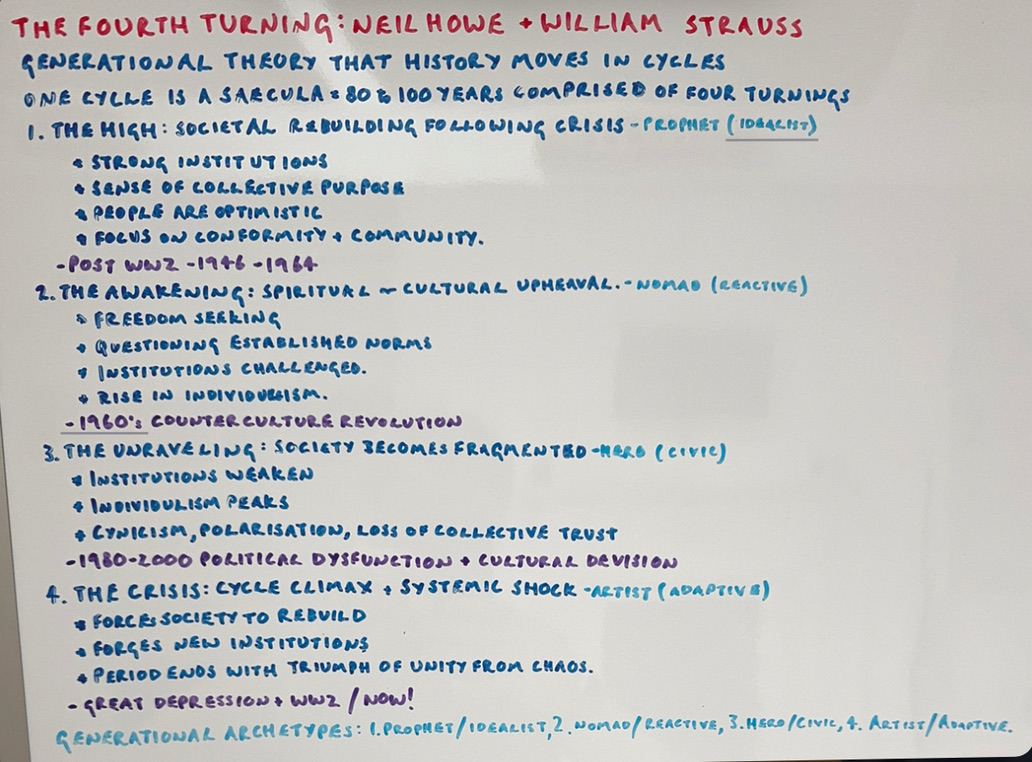 THE FOURTH TURNING: NEIL HOWE + WILLIAM STRAUSS
GENERATIONAL THEORY THAT HISTORY MOVES IN CYCLES
ONE CYCLE IS A SAECULA = 80 to 100 YEARS COMPRISED OF FOUR TURNINGS
1. THE HIGH: SOCIETAL REBUILDING FOLLOWING CRISIS - PROPHET (IDEALIST)
* STRONG INSTITUTIONS
* SENSE OF COLLECTIVE PURPOSE
* PEOPLE ARE OPTIMISTIC
* FOCUS ON CONFORMITY + COMMUNITY.
- POST WW2 - 1946 - 1964
2. THE AWAKENING: SPIRITUAL ~ CULTURAL UPHEAVAL. - NOMAD (REACTIVE)
* FREEDOM SEEKING
* QUESTIONING ESTABLISHED NORMS
* INSTITUTIONS CHALLENGED.
* RISE IN INDIVIDUALISM.
- 1960's COUNTER CULTURE REVOLUTION
3. THE UNRAVELING: SOCIETY BECOMES FRAGMENTED - HERO (CIVIC)
* INSTITUTIONS WEAKEN
* INDIVIDULISM PEAKS
* CYNICISM, POLARISATION, LOSS OF COLLECTIVE TRUST
- 1980-2000 POLITICAL DYSFUNCTION + CULTURAL DEVISION
4. THE CRISIS: CYCLE CLIMAX + SYSTEMIC SHOCK - ARTIST (ADAPTIVE)
* FORCES SOCIETY TO REBUILD
* FORGES NEW INSTITUTIONS
* PERIOD ENDS WITH TRIUMPH OF UNITY FROM CHAOS.
- GREAT DEPRESSION + WW2 / NOW!
GENERATIONAL ARCHETYPES: 1. PROPHET/IDEALIST, 2. NOMAD/REACTIVE, 3. HERO/CIVIC, 4. ARTIST/ADAPTIVE.